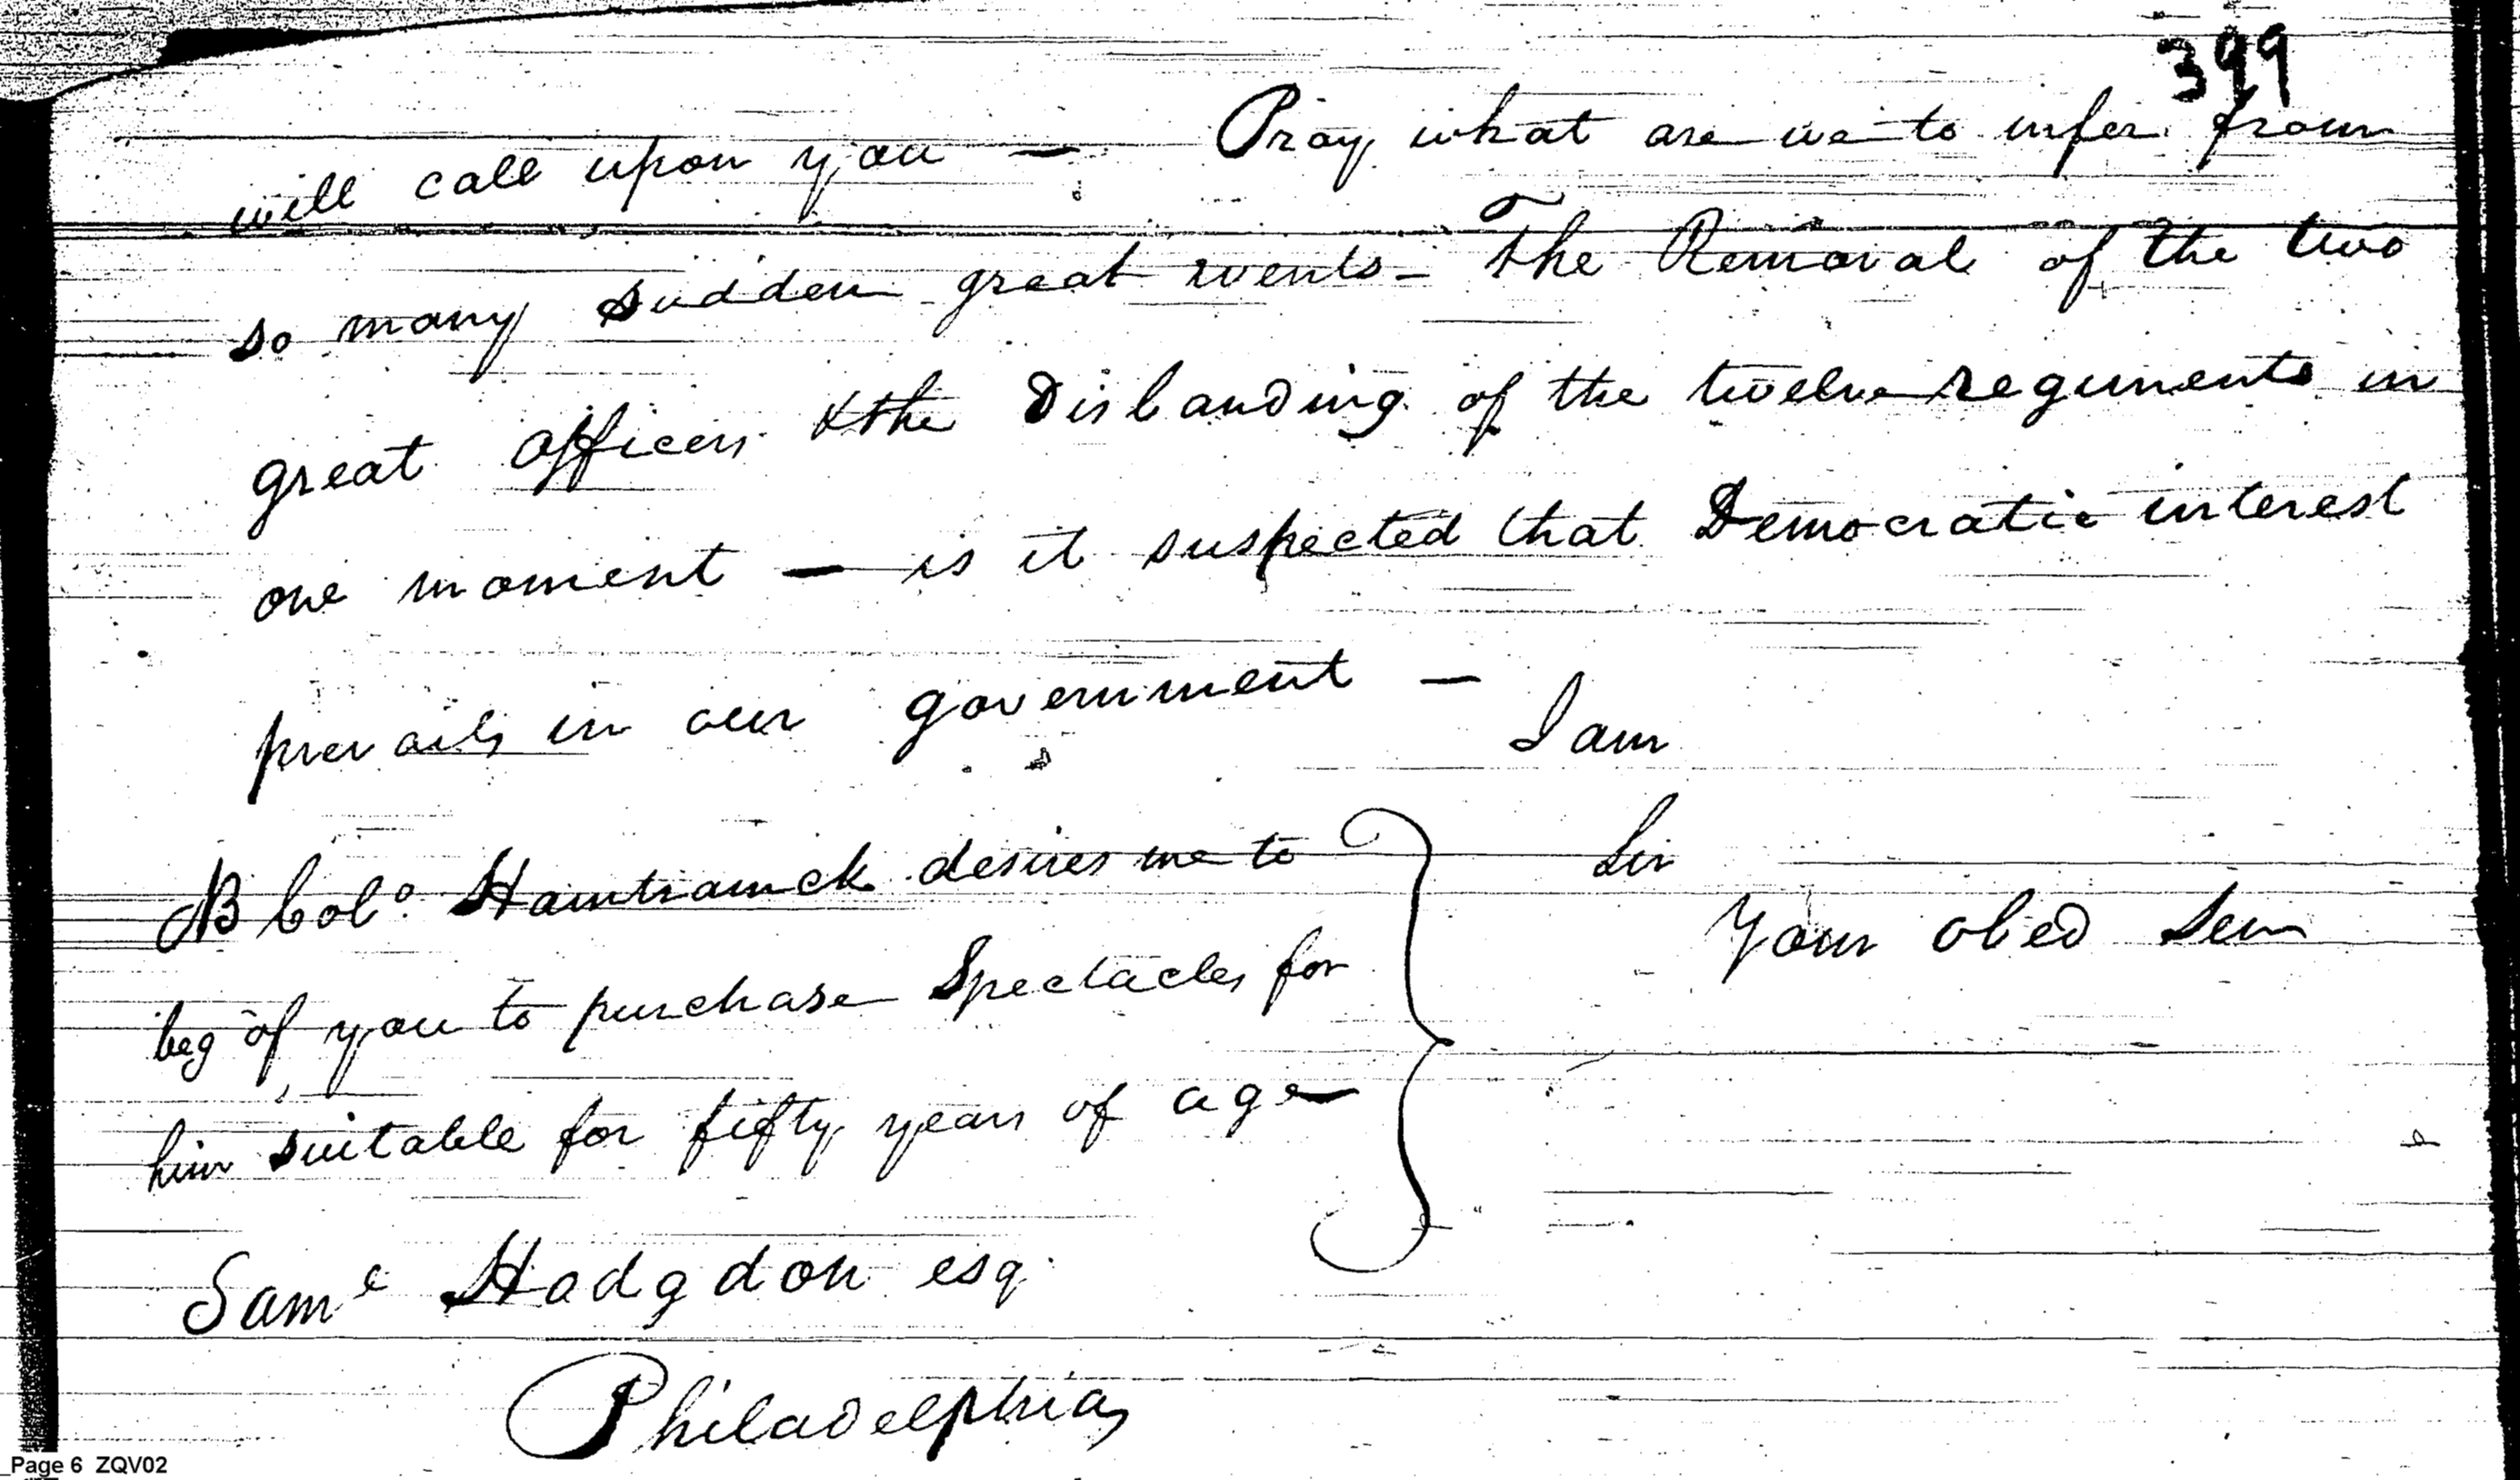 399
will call upon you — Pray what are we to infer from
so many sudden great events — The Removal of the two
great officers & the Disbanding of the twelve regiments in
one moment — is it suspected that Democratic interest
prevails in our government —
I am
Sir
Your obed Serv
NB Colo Hamtramck desires me to
beg of you to purchase Spectacles for
him suitable for fifty years of age
Saml Hodgdon esq.
Philadelphia
_Page 6 ZQV02